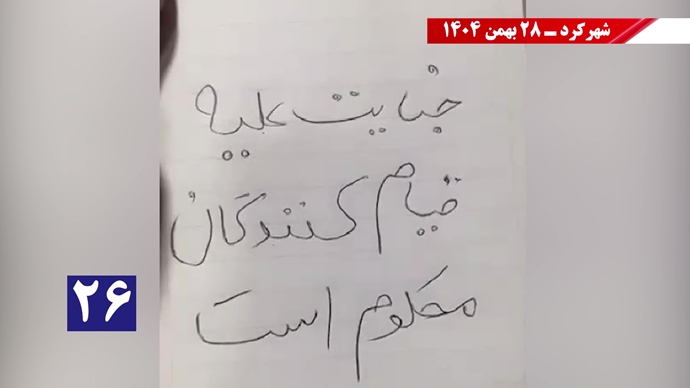 شهرکرد ــ ۲۸ بهمن ۱۴۰۴
جنایت علیه
قیام کنندگان
محکوم است
۲۶